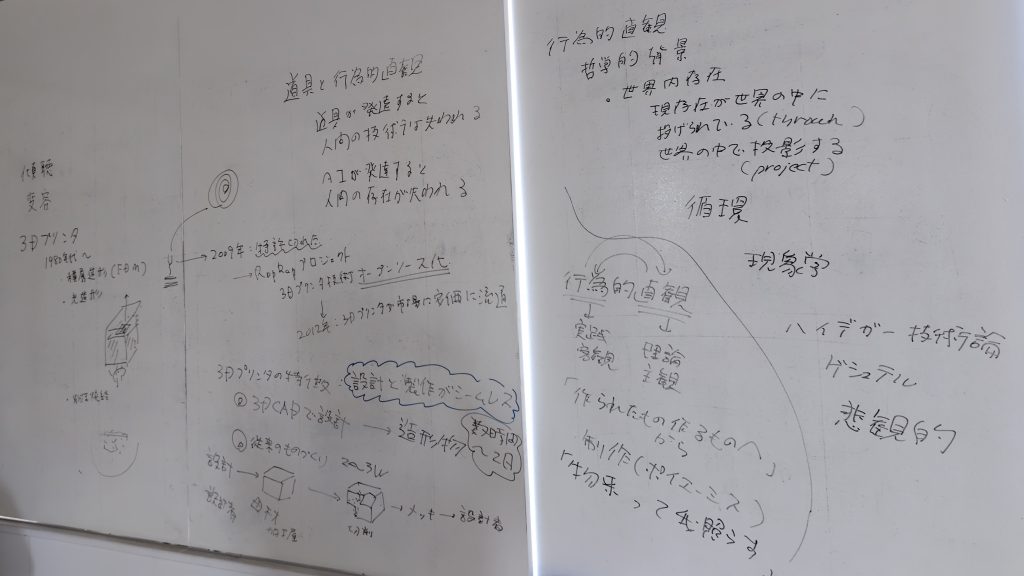 傾聴
変容
3Dプリンタ
1980年代～
・積層造形(FDM)
・光造形
道具と行為的直観
道具が発達すると
人間の技術は失われる
AIが発達すると
人間の存在が失われる
2009年:特許切れ
→RepRapプロジェクト
3Dプリンタ技術オープンソース化
→2012年:3Dプリンタが市場に安価に流通
3Dプリンタの特徴
設計と製作がシームレス
3DCADで設計 → 造形物
数時間
～2日
従来のものづくり 2～3W
設計 → → → メッキ → 設計者
設計者
加工屋
切削
行為的直観
哲学的背景
・世界内存在
現存在が世界の中に
投げられている(throwen)
世界の中で投影する
(project)
循環
現象学
行為的直観
↓ ↓
実践 理論
客観 主観
「作られたもの作るものへ」
から
制作(ポイエーシス)
「物来って我照らす
ハイデガー技術論
ゲシュテル
悲観的